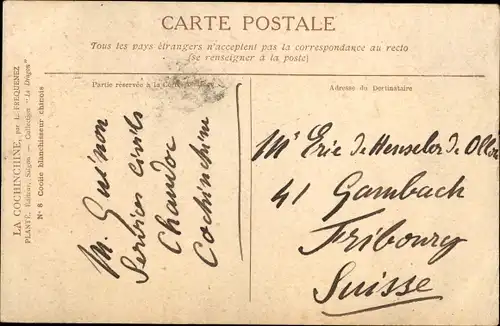 CARTE POSTALE
Tous les pays étrangers n'acceptent pas la correspondance au recto
(se renseigner à la poste)
Partie réservée à la
Adresse du Destinataire
LA COCHINCHINE, par L. FREQUENEZ
PLANTÉ, Editeur, Saigon — Collection "Le Dragon"
N° 8 Coolie blanchisseur chinois
M. Guénon
Services civils
Chaudoc
Cochinchine
Mr Eric de Henseler de
41 Gambach
Fribourg
Suisse